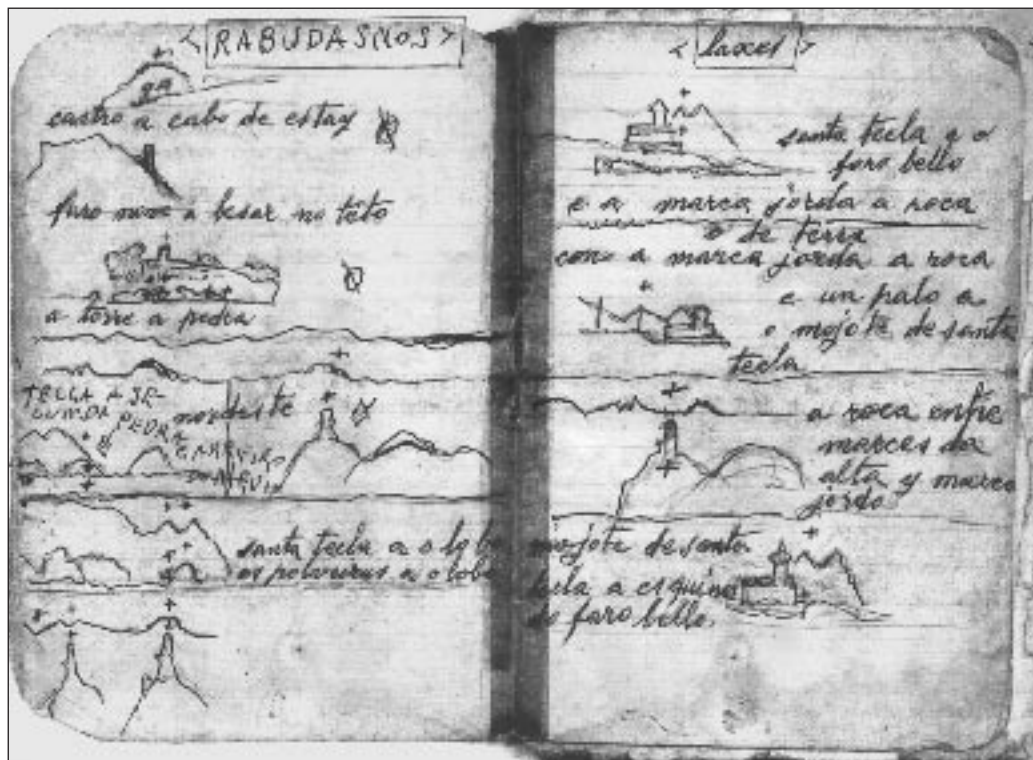 < RABUDASNOS >
castro a cabo de estay
faro novo a besar no teto
a torre a pedra
TECLA A SE-
GUNDA PEDRA
nordeste
santa tecla a o lobo
os polveirus a o lobo
< Laxes >
santa tecla y o
faro bello
e a marca jorda a roca
o de terra
cono a marca jorda a roca
e un palo a
o mojote de santa
tecla
a roca enfre
marces da
alta y marco
jordo
mojote de santa
tecla a esquina
do faro bello.